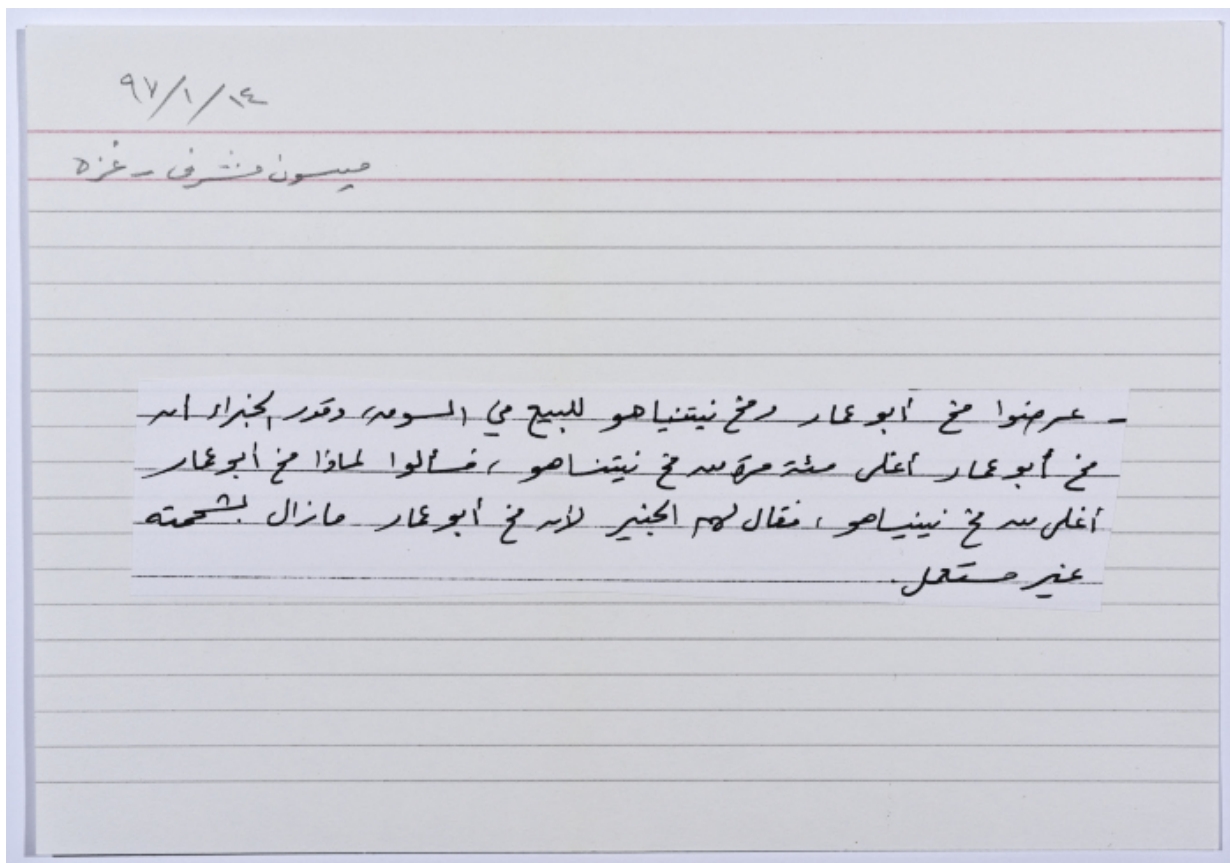 ٩٧/١/١٤
ميسون مشرفي - غزه
- عرضوا مخ أبو عمار ومخ نيتنياهو للبيع في السوق، وقدر الخبراء أن
مخ أبو عمار أغلى مئة مرة من مخ نيتنياهو، فسألوا لماذا مخ أبو عمار
أغلى من مخ نيتنياهو، فقال لهم الخبير لأن مخ أبو عمار مازال بشحمته
غير مستعمل.